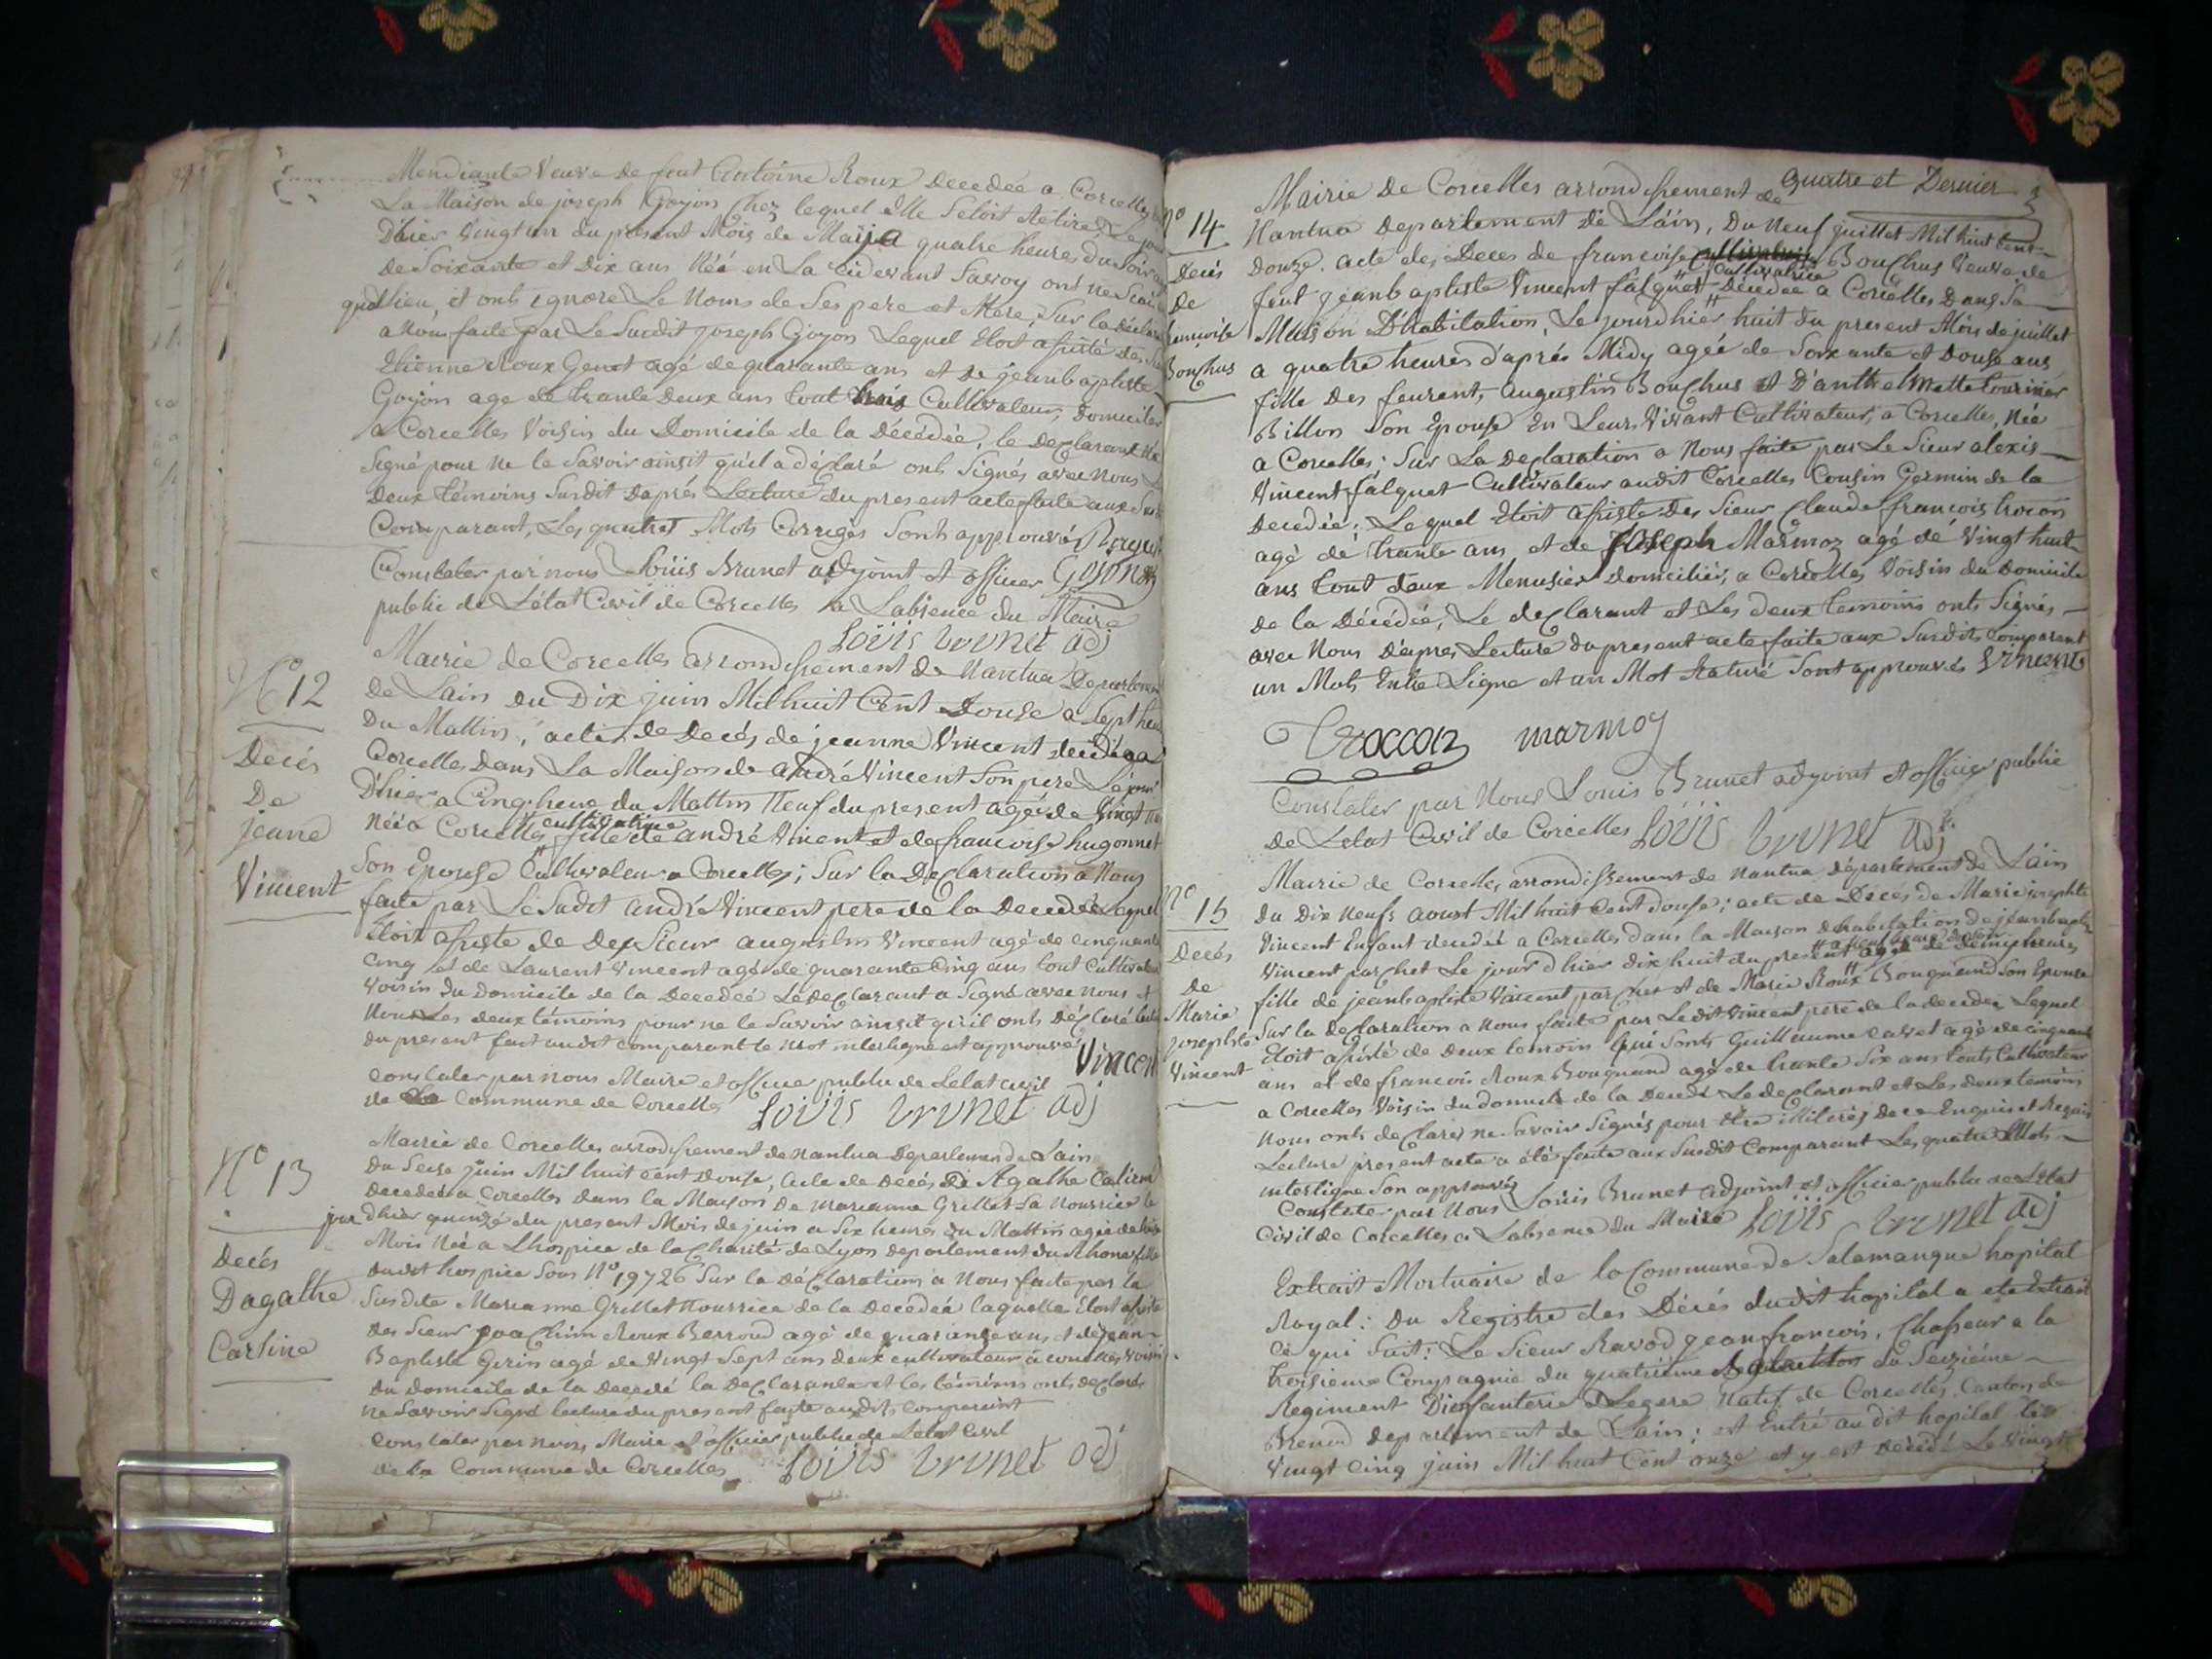 Mendiante Veuve de feut Antoine Roux Decedée a Corcelles
La Maison de joseph Gojon Chez lequel elle Setoit Retiré Le jour
D'hier vingt un du present Mois de Maij a quatre heures du Soir
de Soixante et Dix ans Née en La cidevant Savoy ont ne Scai
quel lieu, et ont ignore Le Noms de Ses pere et Mere, Sur la Déclara
a Nous faite par Le Susdit joseph Gojon Lequel Etoit assisté des
Etienne Roux Genot agé de quarante ans et de jeanbaptiste
Gojon age de trante Deux ans tout trois Cultivateur, Domicilies
a Corcelles Voisin du Domicile de la Décédée, le Declarant n'a
Signé pour ne le Savoir ainsit qu'il a déclaré onts Signés avec Nous
Deux témoins Susdit D'aprés Lecture du present acte faite aux
Comparant, Les quatres Mots Corrigés Sonts approuvé
Constater par nous Loüis Brunet adjoint et officier Gojon
public de L'état Civil de Corcelles a Labsence du Maire
Loüis brunet adj
N° 12
Decés
De
jeane
Vincent
Mairie de Corcelles arrondissement de Nantua Departement
de Lain du Dix juin Mil huit Cent Douse a Sept heure
Du Mattin, acte de Decés de jeanne Vincent decédée a
Corcelles Dans La Maison de andré Vincent Son pere Le jour
D'hier a Cinq heure du Mattin Neuf du present agée de Vingt
cultivatrice
Née a Corcelles fille de andré Vincent et de francoise hugonnet
Son Epouse Cultivateur a Corcelles; Sur la Declaration a Nous
faite par Le Sudit andré Vincent pere de la Decedée Lequel
Etoit assiste de Des Sieur augustin Vincent agé de cinquante
cinq et de Laurent Vincent agé de quarante Cinq ans tout Cultivateur
Voisin du Domicile de la Decedeé Le Declarant a Signé avec nous et
Non Les deux témoins pour ne le Savoir ainsit qu'il onts Déclaré
du present fait audit comparant le Mot interligne est approuvé Vincen
constater par nous Maire et officier public de Letat civil
de La Commune de Corcelles Loüis brunet adj
N° 13
Decés
Dagathe
Carline
Mairie de Corcelles arrodissement de nantua Departement de Lain
Du Seise juin Mil huit Cent Douse, Acte de Decés de Agathe
Decedeé a Corcelles dans la Maison De marianne Grillet Sa Nourrice le
jour d'hier quinze du present Mois de juin a Six heures du Mattin agée de
Mois Née a Lhospice de la Charité de Lyon departement du Rhone fille
dudit hospice Sous N° 19726 Sur la Déclaration a Nous faite par la
Susdite Marianne Grillet Nourrice de la Decedeé laquelle Etoit
des Sieur joachim Roux Berroud agé de quarante ans et de jean
Baptiste Gerin agé de Vingt Sept ans deux cultivateur a corcelles Voisin
du Domicile de la Decedé la Declarante et les témoins onts declarés
ne Savoir Signé lecture du present faite audits comparant
Constater par nous Maire et officier public de Letat Civil
de La Commune de Corcelles Loüis brunet adj
quatre et Dernier
N° 14
Decés
De
Bouchus
Mairie de Corcelles arrondissement de
Nantua departement de Láin, Du Neuf juillet Mil huit Cent
Douze. acte de, Deces de francoise Bouchus Veuve de
Cultivatrice
feut jeanbaptiste Vincent falquet Décédée a Corcelles Dans Sa
Maison D'habitation, Le jour d'hier huit du present Mois de juillet
a quatre heures d'aprés Midy agée de Soixante et Douse ans
fille Des feurent, Augustin Bouchus et D'anthelmette Tournier
Billon Son Epouse En Leur Vivant Cultivateur, a Corcelles, Née
a Corcelles; Sur La Declaration a Nous faite par Le Sieur alexis
Vincent falquet Cultivateur audit Corcelles Cousin Germin de la
Decedée; Lequel Etoit assiste Des Sieur Claude francois trocon
agé de trante ans, et de Joseph Marmoz agé de Vingt huit
ans tout deux Menusier Domicilier, a Corcelles Voisin du Domicile
de la Décédée, Le declarant et Les deux temoins onts Signés
avec Nous D'apres Lecture du present acte faite aux Susdits Comparant
un Mots Entre Ligne et un Mot Raturé Sont approuvés Vincent
Troccon marmoz
Constater par Nous Louis Brunet adjoint et officier public
de Letat Civil de Corcelles Loüis brunet adj
N° 15
Decés
de
Marie
josephte
Vincent
Mairie de Corcelles arrondissement de Nantua département de Láin
du Dix Neufs aoust Mil huit Cent Douse; acte de Décés de Marie josephte
Vincent Enfant decedée a Corcelles dans la Maison dhabitation de jeanbaptis
Vincent parchet Le jour d'hier dix huit du present agée de demy heures
fille de jeanbaptiste Vincent parchet et de Marie Roux Bouquand Son Epouse
Sur la declaration a Nous faite par Ledit Vincent pere de la decedée Lequel
Etoit assisté de deux temoin qui Sonts Guillaume agé de cinquante
ans et de francois Roux Bouquand agé de trante Six ans touts Cultivateur
a Corcelles Voisin du domicile de la Decedé Le declarant et Les deux temoins
Nous onts declarés ne Savoir Signés pour Etre de ce Enquis et Requis
Lecture present acte a été faite aux Susdit Comparant Les quatre Mots
interligne Son approuvés
Constater par Nous Louis Brunet adjoint et officier public de Létat
Civil de Corcelles a Labsence du Maire Loüis brunet adj
Extrait Mortuaire de la Commune de Salamanque hopital
Royal: Du Registre des Décés dudit hopital a eté Extrait
Ce qui Suit: Le Sieur Ravod jeanfrancois, Chasseur a la
troisieme Compagnie du quatrième Bataillon du Seiziéme
Regiment D'infanterie Legere Natif de Corcelles Canton de
Brenod departement de Lain; est Entré audit hopital Le
Vingt Cinq juin Mil huit Cent onze et y est décédé Le Vingt